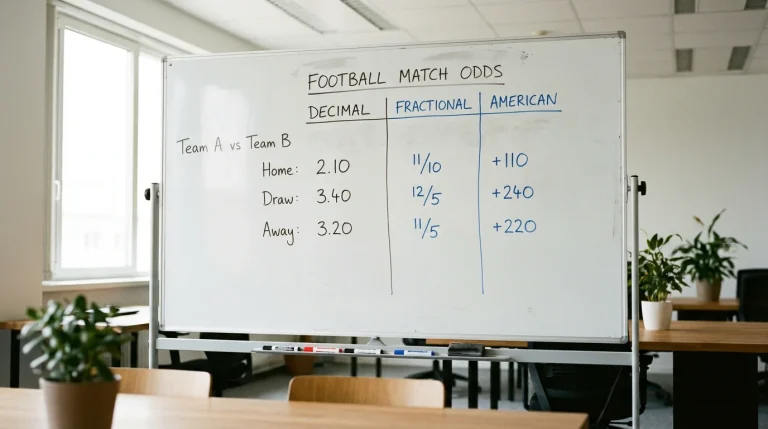 FOOTBALL MATCH ODDS
DECIMAL FRACTIONAL AMERICAN
Team A vs Team B
Home: 2.10 11/10 +110
Draw: 3.40 12/5 +240
Away: 3.20 11/5 +220